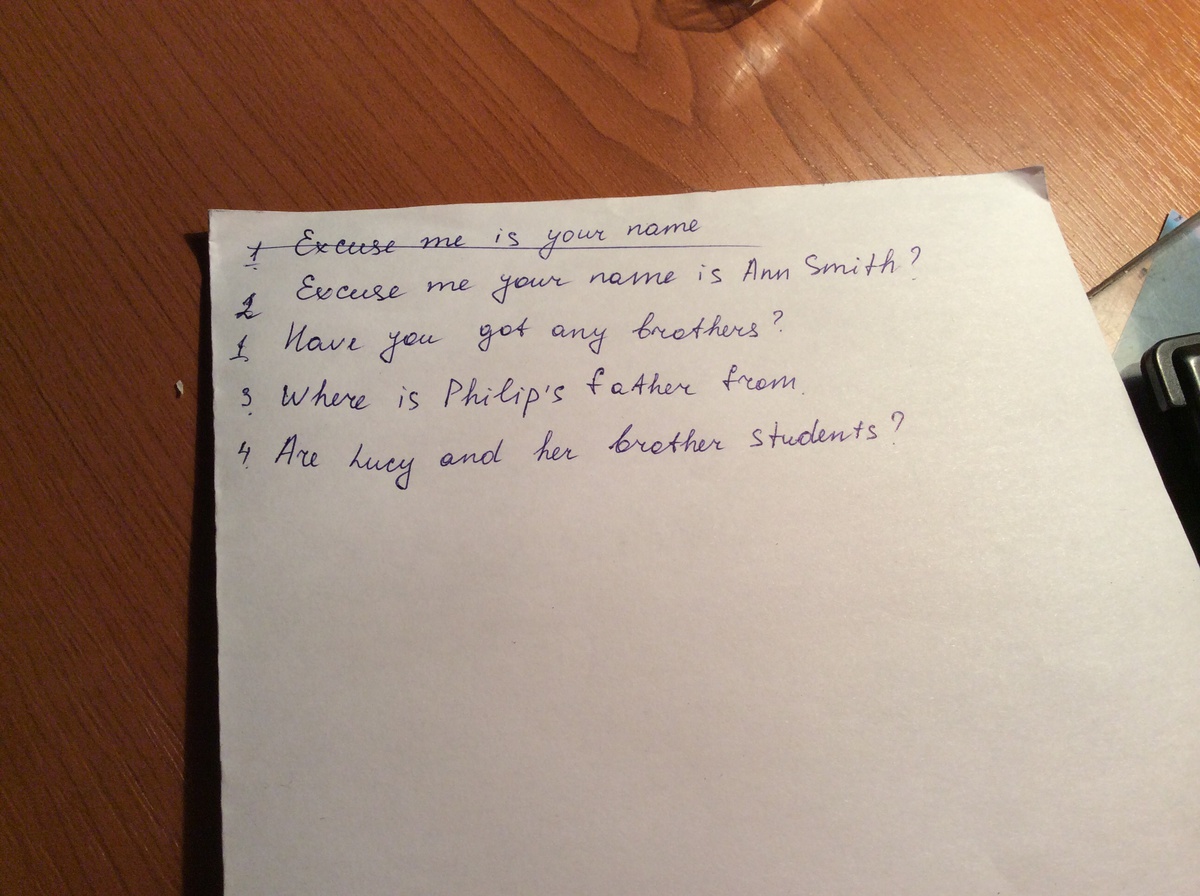 1 Excuse me is your name
2 Excuse me your name is Ann Smith?
1. Have you got any brothers?
3. Where is Philip's father from.
4. Are Lucy and her brother students?